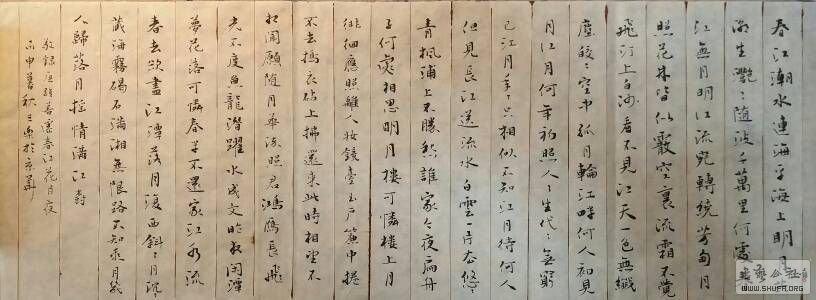 春江潮水連海平海上明月
潮生灩々隨波千萬里何處
江無月明江流宛轉繞芳甸月
照花林皆似霰空裏流霜不覺
飛汀上白沙看不見江天一色無纖
塵皎々空中孤月輪江畔何人初見
月江月何年初照人々生代々無窮
已江月年々只相似不知江月待何人
但見長江送流水白雲一片去悠々
青楓浦上不勝愁誰家今夜扁舟
子何處相思明月樓可憐樓上月
徘徊應照離人妝鏡臺玉戶簾中捲
不去搗衣砧上拂還來此時相望不
相聞願隨月華流照君鴻雁長飛
光不度魚龍潛躍水成文昨夜閑潭
夢花落可憐春半不還家江水流
春去欲盡江潭落月復西斜々月沉々
藏海霧碣石瀟湘無限路不知乘月幾
人歸落月搖情滿江樹
敬錄唐張若虛春江花月夜
丙申暮秋於京華
WWW.SHUFA.ORG